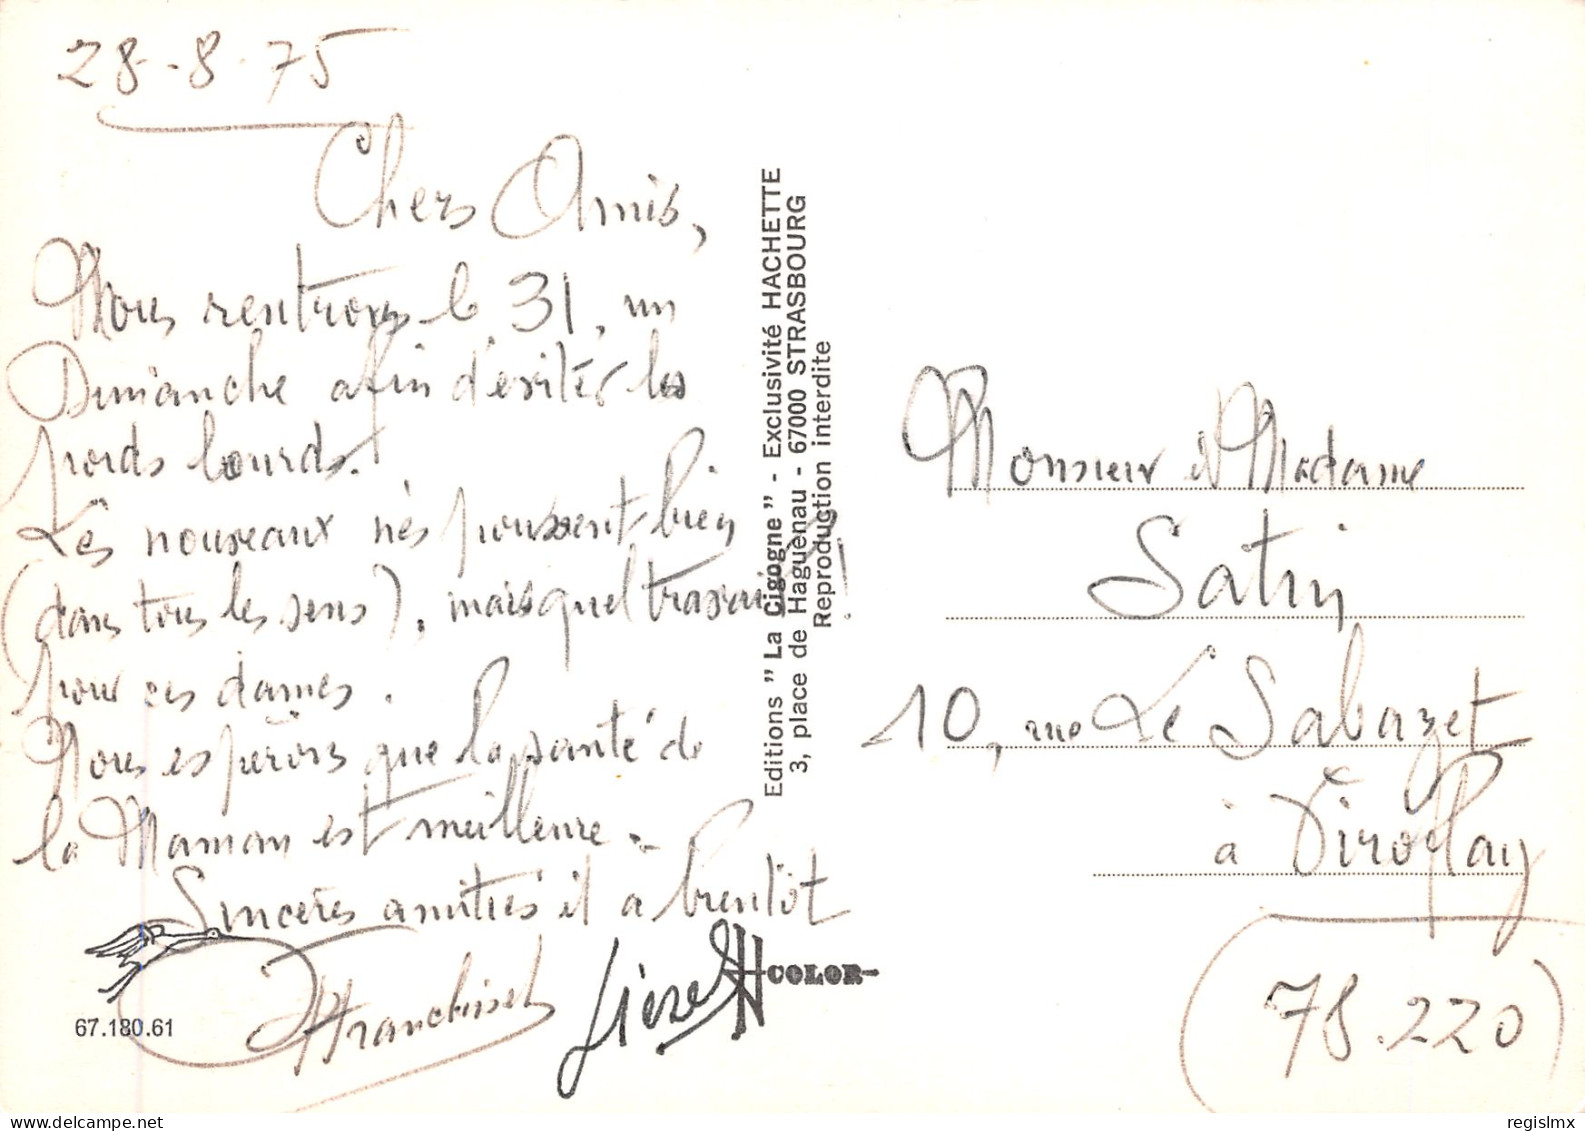 28-8-75
Chers Amis,
Nous rentrons le 31, un
Dimanche afin d'éviter les
poids lourds.
Les nouveaux nés poussent bien
(dans tous les sens), mais quel travail!
pour ces dames.
Nous espérons que la santé de
la Maman est meilleure.
Sincères amitiés et a bientôt
67.180.61
Editions "La Cigogne" - Exclusivité HACHETTE
3, place de Haguenau - 67000 STRASBOURG
Reproduction interdite
COLOR
Monsieur et Madame
Satin
10, rue Le Sabazet
à Viroflay
(78.220)
regislmx